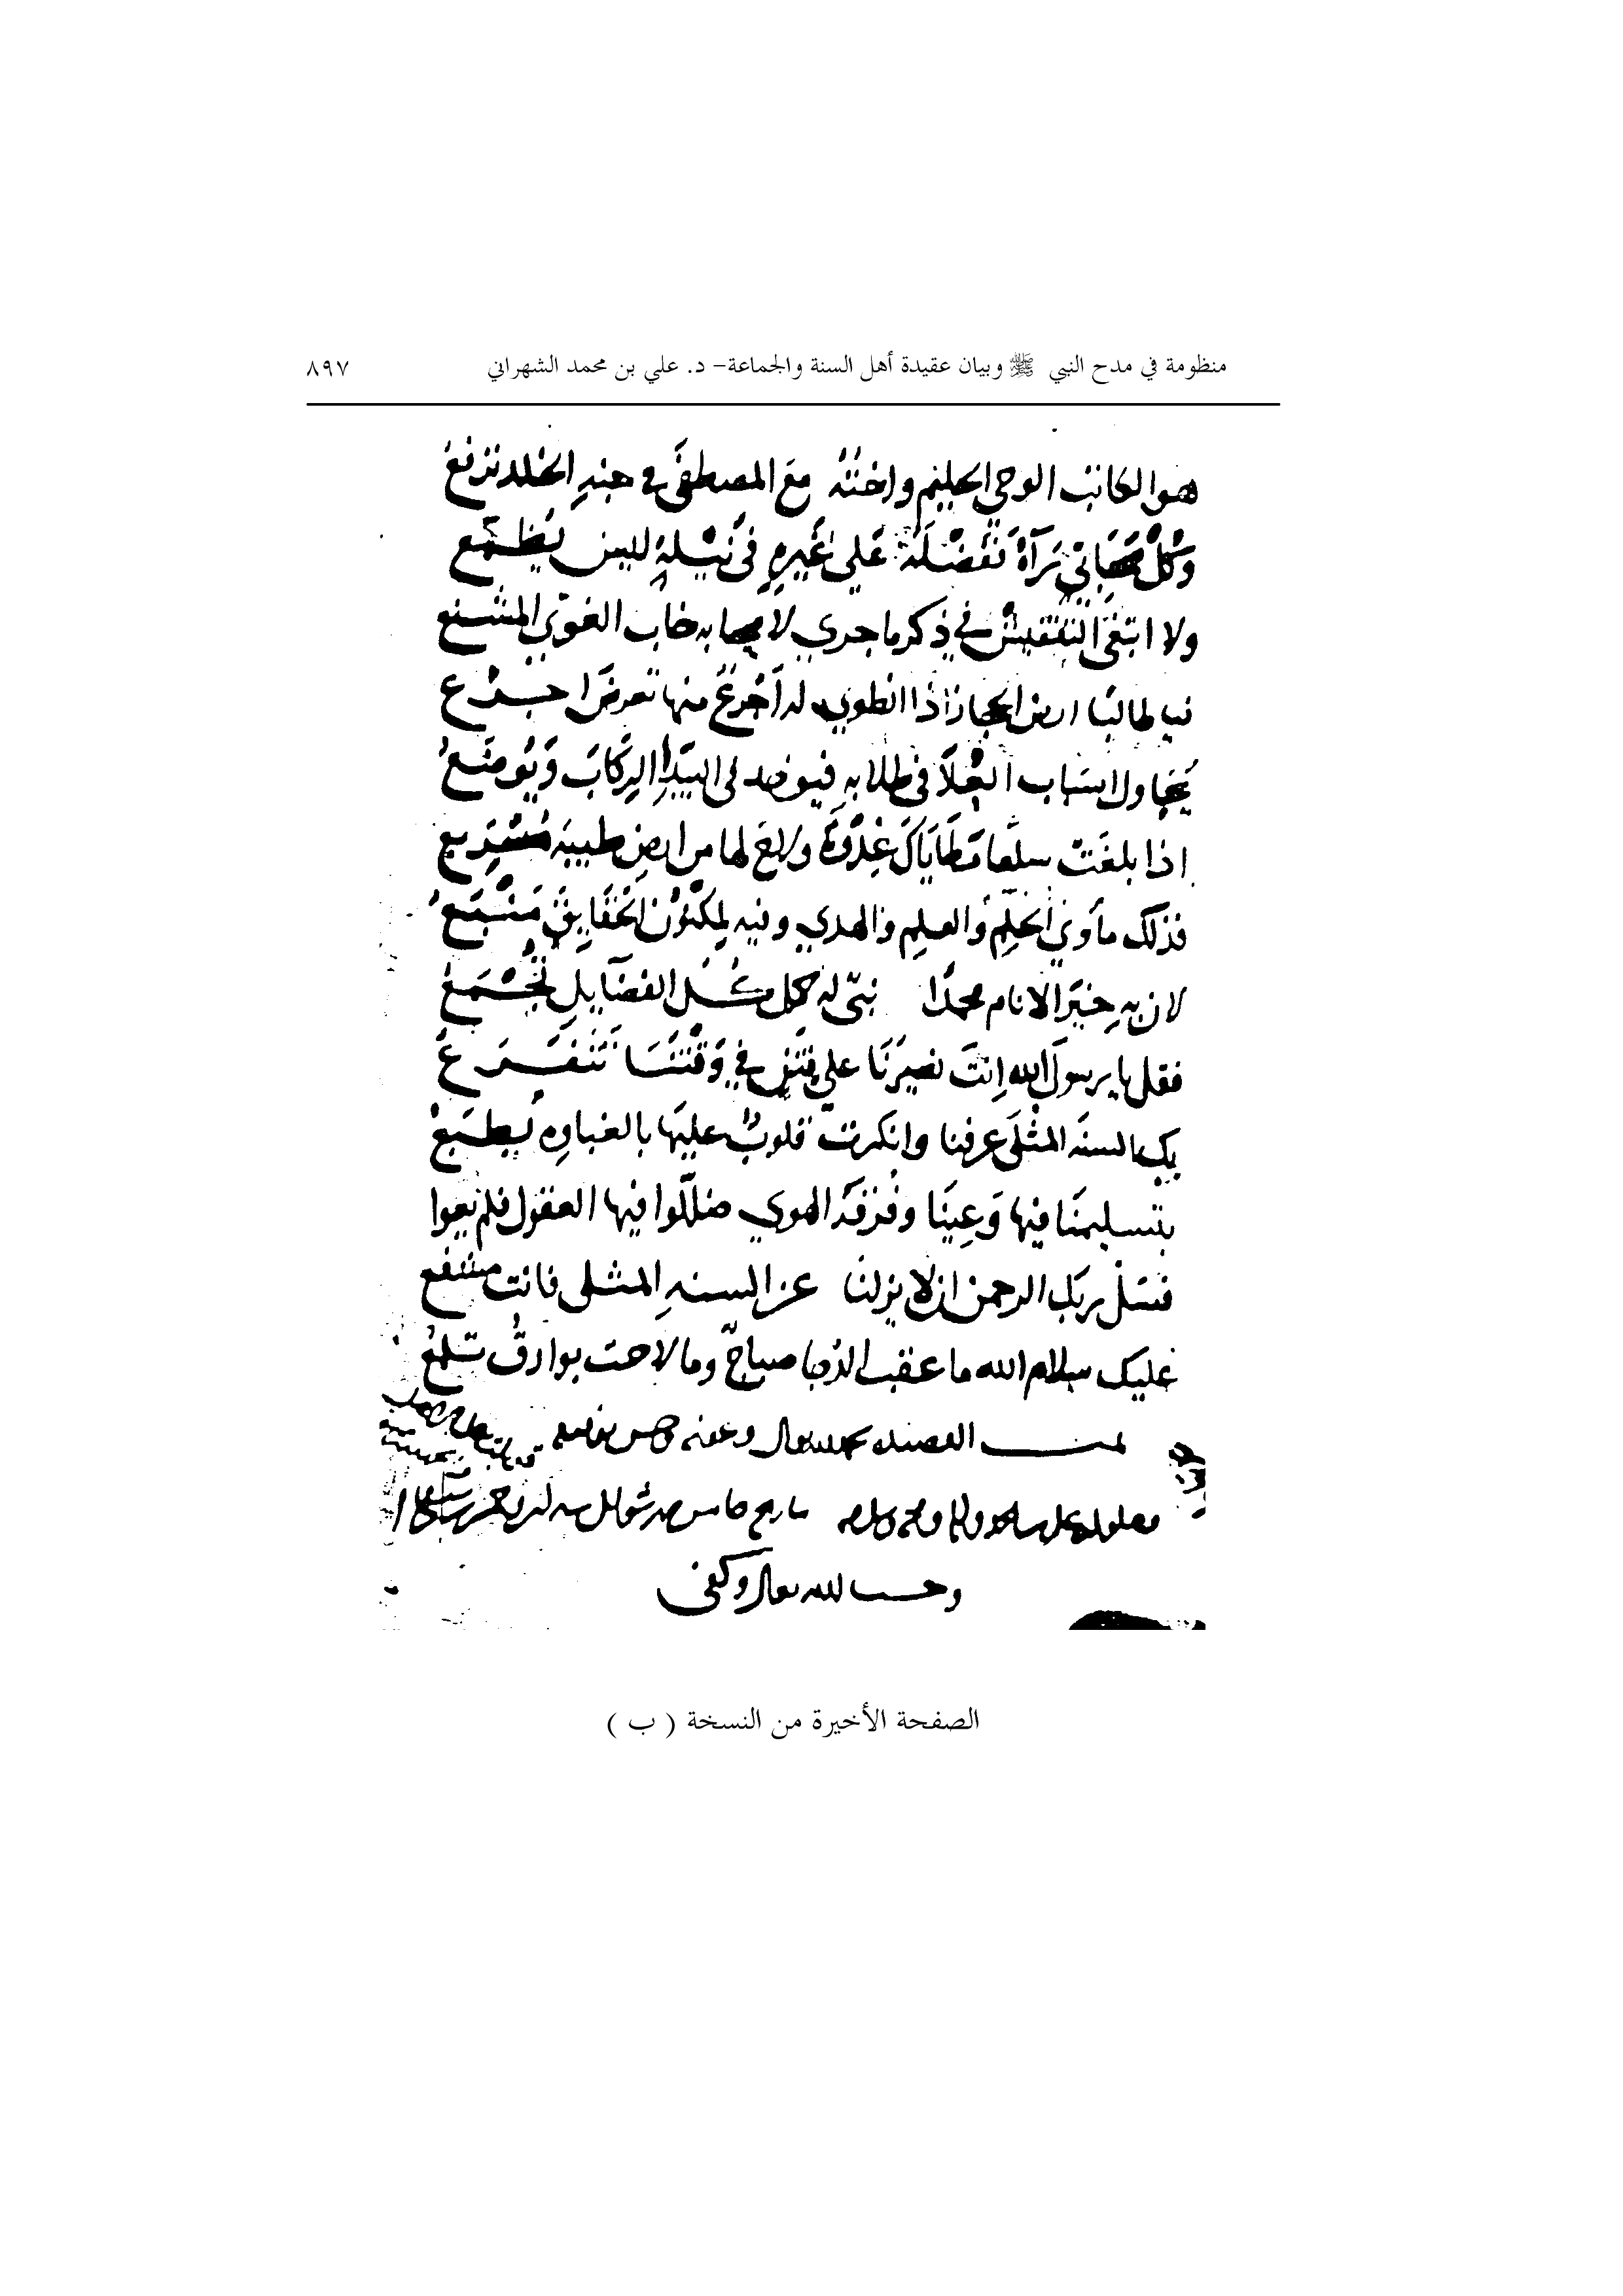 منظومة في مدح النبي ﷺ وبيان عقيدة أهل السنة والجماعة- د. علي بن محمد الشهراني ٨٩٧
هو الكاتب الوحي الحليم واخته مع المصطفى في جنة الخلد ترتع
وكل صحابي نرآه تفضله على غيره في نيله ليس يطمع
ولا ابتغى التفتيش في ذكر ما جري لاصحابه خاب الغوي المشنع
فيا طالبا ارض الحجاز اذا انطوي له اجرع منها تعرض اجرع
يحاول اسباب العلا في طلابه فيو في البيدا الركاب ويوضع
اذا بلغت سلعا مطاياك غدوة ولاح لها من ارض طيبة
فذلك مأوي الحلم والعلم والهدي وفيه لمكنون الحقايق منبع
لان به خير الانام محمدا نبي له كل الفضايل تجمع
فقل يا رسول الله انت نصيرنا علي فتن في وقتنا تتفرع
بك السنة المثلى عرفنا وانكرت قلوب عليها بالغباوه يطبع
بتسليمنا فيها وعينا وفرقة الهوي ضللوا فيها العقول فلم يعوا
فسل ربك الرحمن ان لا يزلنا عن السنة المثلى فانت مشفع
عليك سلام الله ما عقب الدجا صباح وما لاحت بوارق تلمع
تمت القصيده بحمد الله تعالى وعونه وحسن توفيقه
وصلواته على سيدنا محمد واله وصحبه وسلامه
وحسبنا الله تعالى وكفى
الصفحة الأخيرة من النسخة ( ب )